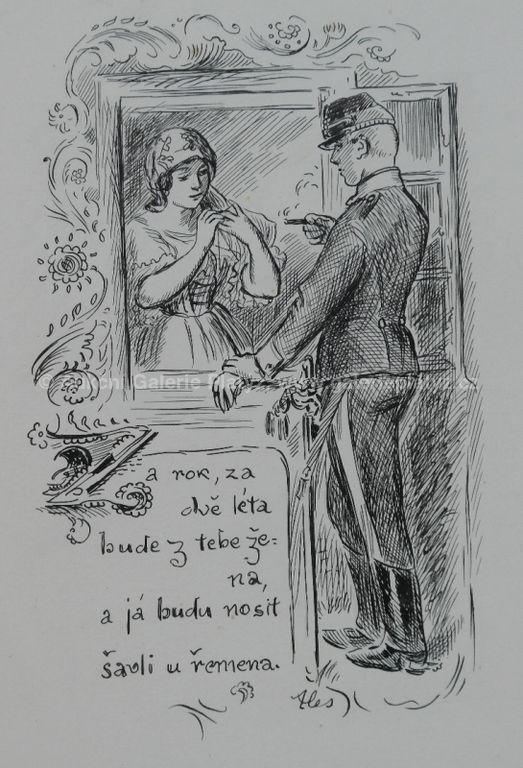 Za rok, za
dvě léta
bude z tebe že-
na,
a já budu nosit
šavli u řemena.